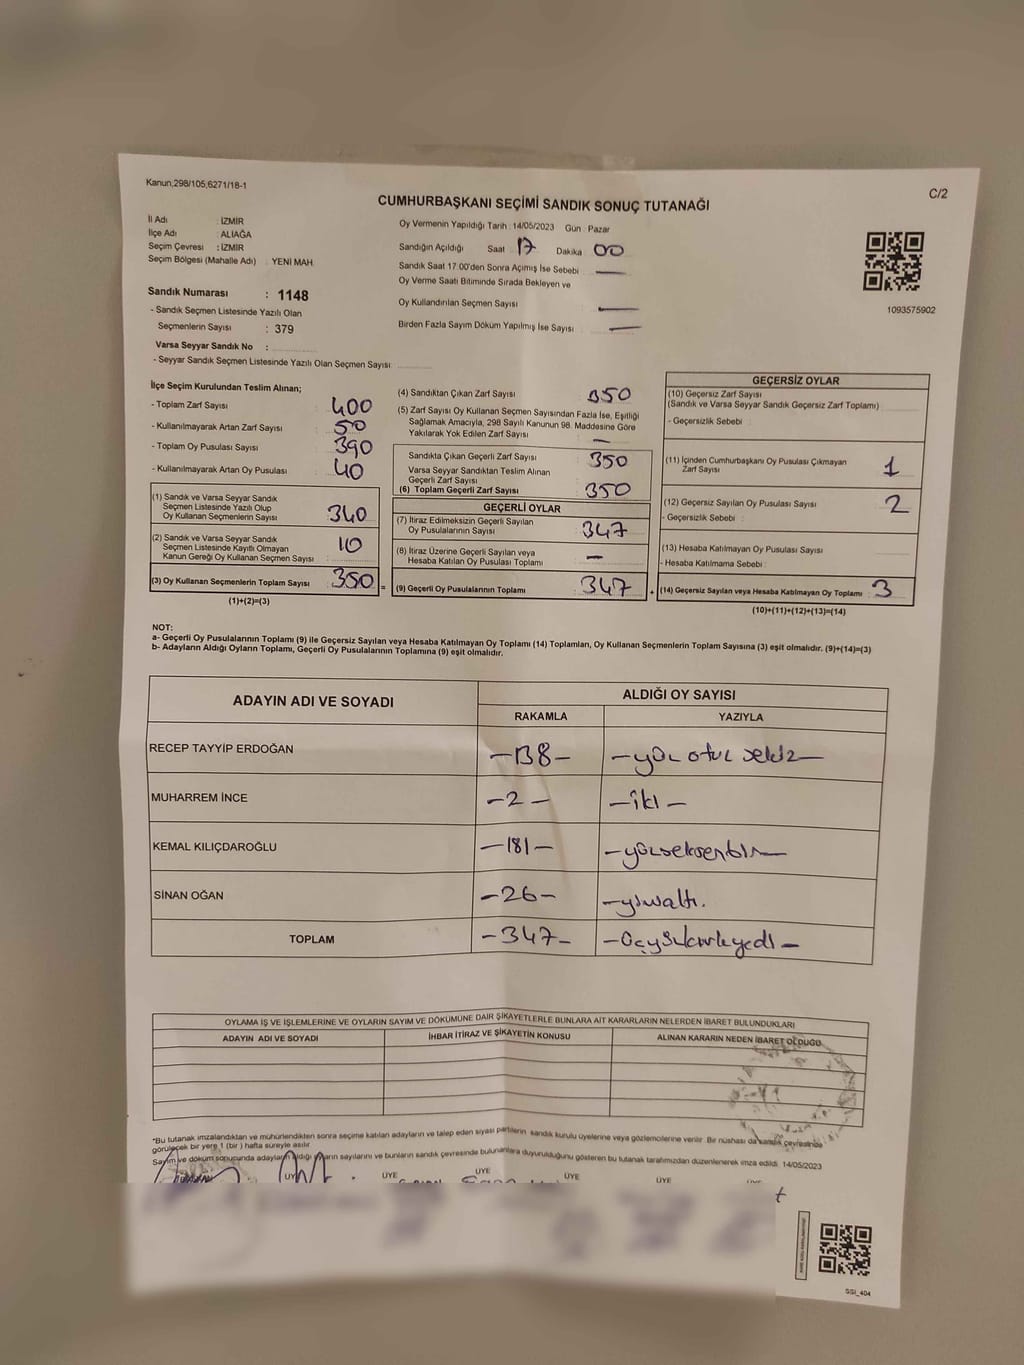 Kanun;298/105,6271/18-1
C/2
CUMHURBAŞKANI SEÇİMİ SANDIK SONUÇ TUTANAĞI
İl Adı : İZMİR
İlçe Adı : ALİAĞA
Seçim Çevresi : İZMİR
Seçim Bölgesi (Mahalle Adı) : YENİ MAH.
Sandık Numarası : 1148
- Sandık Seçmen Listesinde Yazılı Olan
Seçmenlerin Sayısı : 379
Varsa Seyyar Sandık No :
- Seyyar Sandık Seçmen Listesinde Yazılı Olan Seçmen Sayısı:
Oy Vermenin Yapıldığı Tarih : 14/05/2023 Gün : Pazar
Sandığın Açıldığı Saat : 17 Dakika : 00
Sandık Saat 17:00'den Sonra Açılmış İse Sebebi : —
Oy Verme Saati Bitiminde Sırada Bekleyen ve
Oy Kullandırılan Seçmen Sayısı : —
Birden Fazla Sayım Döküm Yapılmış İse Sayısı : —
1093575902
İlçe Seçim Kurulundan Teslim Alınan;
- Toplam Zarf Sayısı : 400
- Kullanılmayarak Artan Zarf Sayısı : 50
- Toplam Oy Pusulası Sayısı : 390
- Kullanılmayarak Artan Oy Pusulası : 40
(1) Sandık ve Varsa Seyyar Sandık
Seçmen Listesinde Yazılı Olup
Oy Kullanan Seçmenlerin Sayısı : 340
(2) Sandık ve Varsa Seyyar Sandık
Seçmen Listesinde Kayıtlı Olmayan
Kanun Gereği Oy Kullanan Seçmen Sayısı : 10
(3) Oy Kullanan Seçmenlerin Toplam Sayısı : 350
(1)+(2)=(3)
(4) Sandıktan Çıkan Zarf Sayısı : 350
(5) Zarf Sayısı Oy Kullanan Seçmen Sayısından Fazla İse, Eşitliği
Sağlamak Amacıyla, 298 Sayılı Kanunun 98. Maddesine Göre
Yakılarak Yok Edilen Zarf Sayısı : —
Sandıkta Çıkan Geçerli Zarf Sayısı : 350
Varsa Seyyar Sandıktan Teslim Alınan
Geçerli Zarf Sayısı :
(6) Toplam Geçerli Zarf Sayısı : 350
GEÇERLİ OYLAR
(7) İtiraz Edilmeksizin Geçerli Sayılan
Oy Pusulalarının Sayısı : 347
(8) İtiraz Üzerine Geçerli Sayılan veya
Hesaba Katılan Oy Pusulası Toplamı : —
(9) Geçerli Oy Pusulalarının Toplamı : 347
GEÇERSİZ OYLAR
(10) Geçersiz Zarf Sayısı
(Sandık ve Varsa Seyyar Sandık Geçersiz Zarf Toplamı) :
- Geçersizlik Sebebi :
(11) İçinden Cumhurbaşkanı Oy Pusulası Çıkmayan
Zarf Sayısı : 1
(12) Geçersiz Sayılan Oy Pusulası Sayısı : 2
- Geçersizlik Sebebi :
(13) Hesaba Katılmayan Oy Pusulası Sayısı :
- Hesaba Katılmama Sebebi :
(14) Geçersiz Sayılan veya Hesaba Katılmayan Oy Toplamı : 3
(10)+(11)+(12)+(13)=(14)
NOT:
a- Geçerli Oy Pusulalarının Toplamı (9) ile Geçersiz Sayılan veya Hesaba Katılmayan Oy Toplamı (14) Toplamları, Oy Kullanan Seçmenlerin Toplam Sayısına (3) eşit olmalıdır. (9)+(14)=(3)
b- Adayların Aldığı Oyların Toplamı, Geçerli Oy Pusulalarının Toplamına (9) eşit olmalıdır.
ADAYIN ADI VE SOYADI ALDIĞI OY SAYISI
RAKAMLA YAZIYLA
RECEP TAYYİP ERDOĞAN -138- -yüz otuz sekiz-
MUHARREM İNCE -2- -iki-
KEMAL KILIÇDAROĞLU -181- -yüzseksenbir-
SİNAN OĞAN -26- -yirmialtı.
TOPLAM -347- -üçyüzkırkyedi-
OYLAMA İŞ VE İŞLEMLERİNE VE OYLARIN SAYIM VE DÖKÜMÜNE DAİR ŞİKAYETLERLE BUNLARA AİT KARARLARIN NELERDEN İBARET BULUNDUKLARI
ADAYIN ADI VE SOYADI İHBAR İTİRAZ VE ŞİKAYETİN KONUSU ALINAN KARARIN NEDEN İBARET OLDUĞU
*Bu tutanak imzalandıktan ve mühürlendikten sonra seçime katılan adayların ve talep eden siyasi partilerin sandık kurulu üyelerine veya gözlemcilerine verilir. Bir nüshası da sandık çevresinde
görülecek bir yere 1 (bir) hafta süreyle asılır.
Sayım ve döküm sonucunda adayların aldığı oyların sayılarını ve bunların sandık çevresinde bulunanlara duyurulduğunu gösteren bu tutanak tarafımızdan düzenlenerek imza edildi. 14/05/2023
ÜYE ÜYE ÜYE ÜYE ÜYE
SSI_404